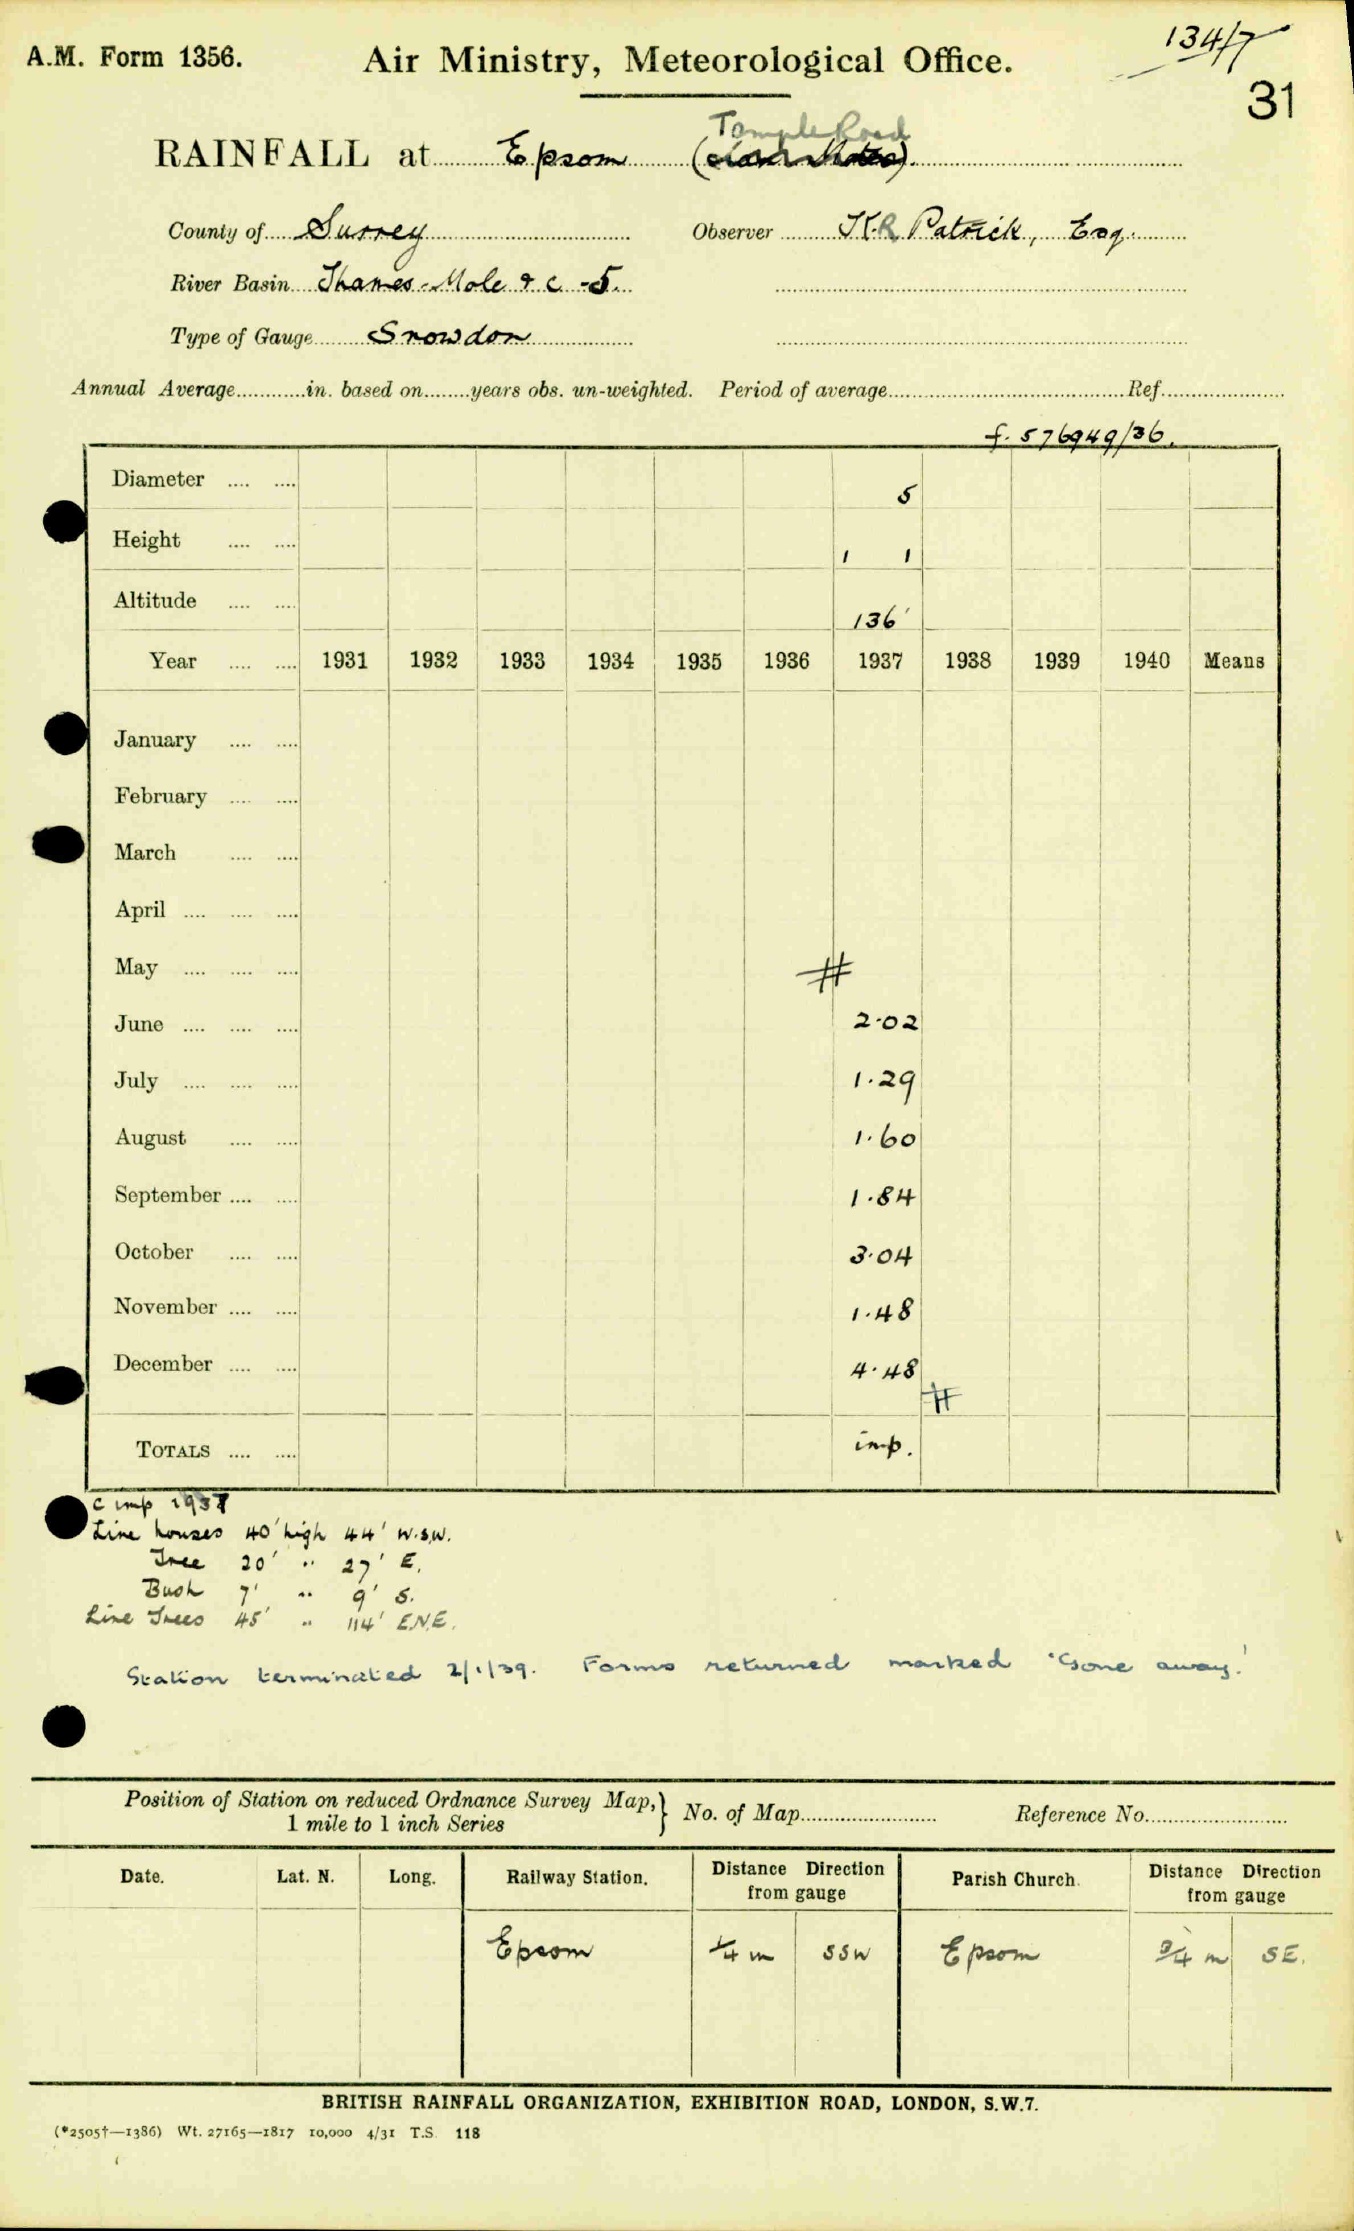 134/7
A.M. Form 1356. Air Ministry, Meteorological Office.
31
Temple Road
RAINFALL at Epsom
County of Surrey Observer K.R Patrick, Esq.
River Basin Thames-Mole & c -5.
Type of Gauge Snowdon
Annual Average............in. based on........years obs. un-weighted. Period of average........................................Ref.....................
f. 576949/36.
Diameter .... .... 5
Height .... .... 1 1
Altitude .... .... 136'
Year .... .... 1931 1932 1933 1934 1935 1936 1937 1938 1939 1940 Means
January .... ....
February .... ....
March .... ....
April .... .... ....
May .... .... .... #
June .... .... .... 2.02
July .... .... .... 1.29
August .... .... 1.60
September .... .... 1.84
October .... .... 3.04
November .... .... 1.48
December .... .... 4.48
#
TOTALS .... .... imp.
c imp 1937
Line houses 40' high 44' W.S.W.
Tree 20' " 27' E.
Bush 7' " 9' S.
Line Trees 45' " 114' E.N.E.
Station terminated 2/1/39. Forms returned marked 'Gone away.'
Position of Station on reduced Ordnance Survey Map,} No. of Map........................ Reference No.........................
1 mile to 1 inch Series
Date. Lat. N. Long. Railway Station. Distance Direction from gauge Parish Church. Distance Direction from gauge
Epsom 1/4 m SSW Epsom 3/4 m SE.
BRITISH RAINFALL ORGANIZATION, EXHIBITION ROAD, LONDON, S.W.7.
(*2505†—1386) Wt. 27165—1817 10,000 4/31 T.S. 118